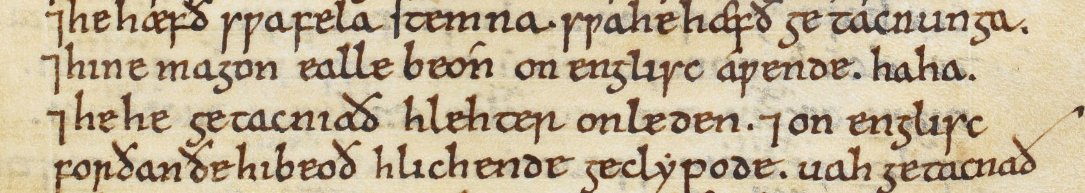 ⁊ he hæfð swa fela stemna. swa he hæfð getácnunga.
⁊ hine magon ealle beón on englisc áwende. haha.
⁊ hehe getacniað hlehter on leden. ⁊ on englisc
forðan ðe hi beoð hlichende geclypode. uah getacnað